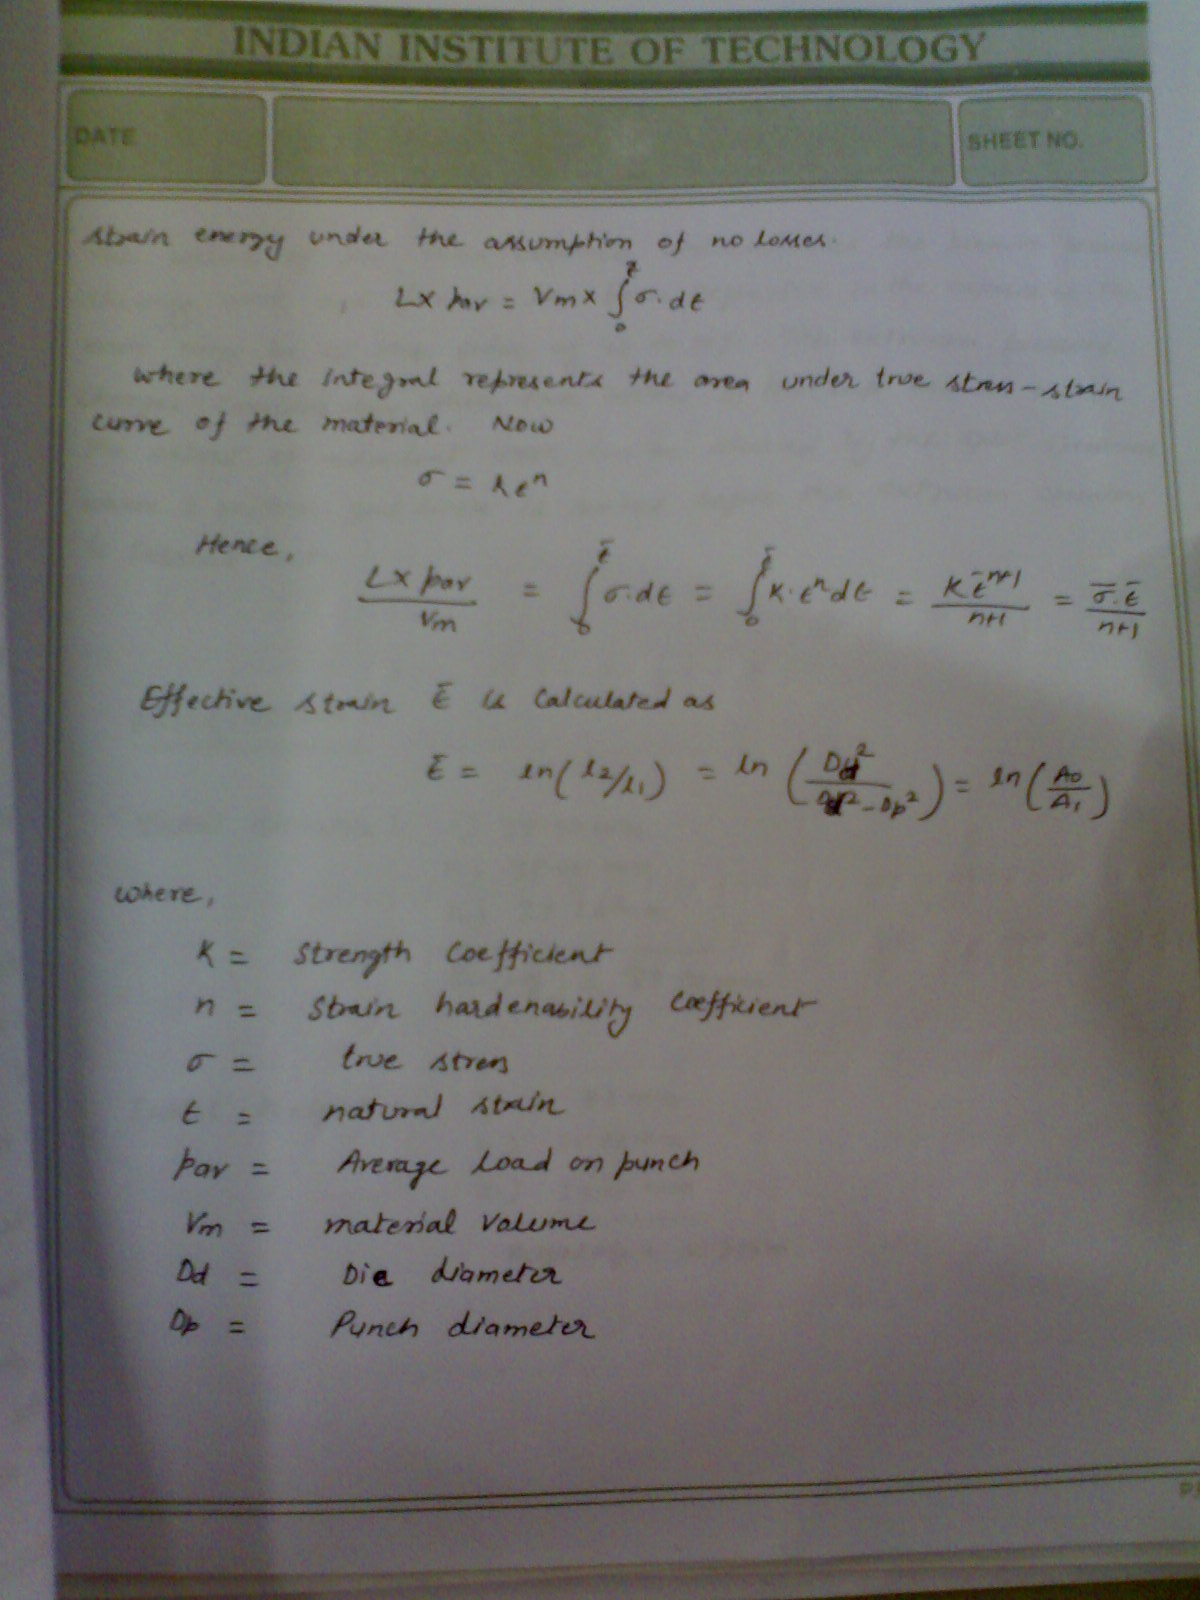 INDIAN INSTITUTE OF TECHNOLOGY
DATE
SHEET NO.
strain energy under the assumption of no losses.
L× Pav = Vm × ∫₀^ε̄ σ. dε
where the integral represents the area under true stress-strain
curve of the material. Now
σ = kεⁿ
Hence,
L× Pav / Vm = ∫₀^ε̄ σ.dε = ∫₀^ε̄ K.εⁿdε = Kε̄ⁿ⁺¹ / n+1 = σ̄.ε̄ / n+1
Effective strain ε̄ is calculated as
ε̄ = ln(l₂/l₁) = ln (Dd² / Dd²-Dp²) = ln (A₀ / A₁)
where,
K = Strength Coefficient
n = Strain hardenability Coefficient
σ = true stress
ε = natural strain
Pav = Average Load on punch
Vm = material volume
Dd = Die diameter
Dp = Punch diameter